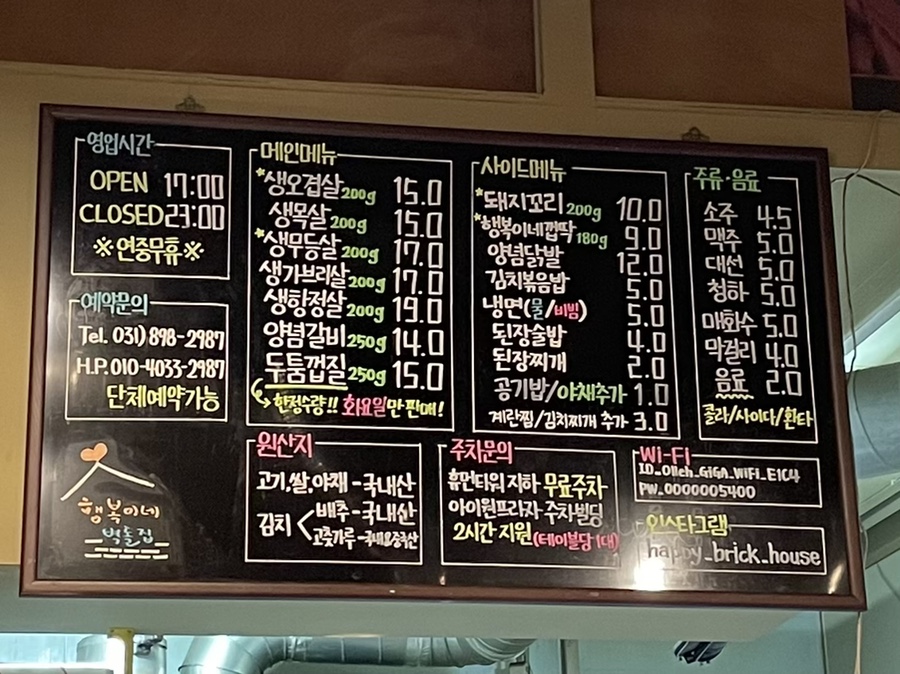 영업시간
OPEN 17:00
CLOSED 23:00
※연중무휴※
예약문의
Tel. 031) 898-2987
H.P. 010-4033-2987
단체예약가능
행복이네
벽돌집
메인메뉴
*생오겹살 200g 15.0
생목살 200g 15.0
*생무등살 200g 17.0
생가브리살 200g 17.0
생항정살 200g 19.0
양념갈비 250g 14.0
두툼껍질 250g 15.0
한정수량!! 화요일만 판매!
사이드메뉴
*돼지꼬리 200g 10.0
*행복이네껍딱 180g 9.0
양념닭발 12.0
김치볶음밥 5.0
냉면(물/비빔) 5.0
된장술밥 4.0
된장찌개 2.0
공기밥/야채추가 1.0
계란찜/김치찌개 추가 3.0
주류·음료
소주 4.5
맥주 5.0
대선 5.0
청하 5.0
매화수 5.0
막걸리 4.0
음료 2.0
콜라/사이다/환타
원산지
고기,쌀,야채-국내산
김치
배추-국내산
고춧가루-국내요중국산
주차문의
휴먼타워 지하 무료주차
아이원프라자 주차빌딩
2시간 지원(테이블당 1대)
Wi-Fi
ID_Olleh_GiGA_WiFi_E1C4
PW_0000005400
인스타그램
happy_brick_house